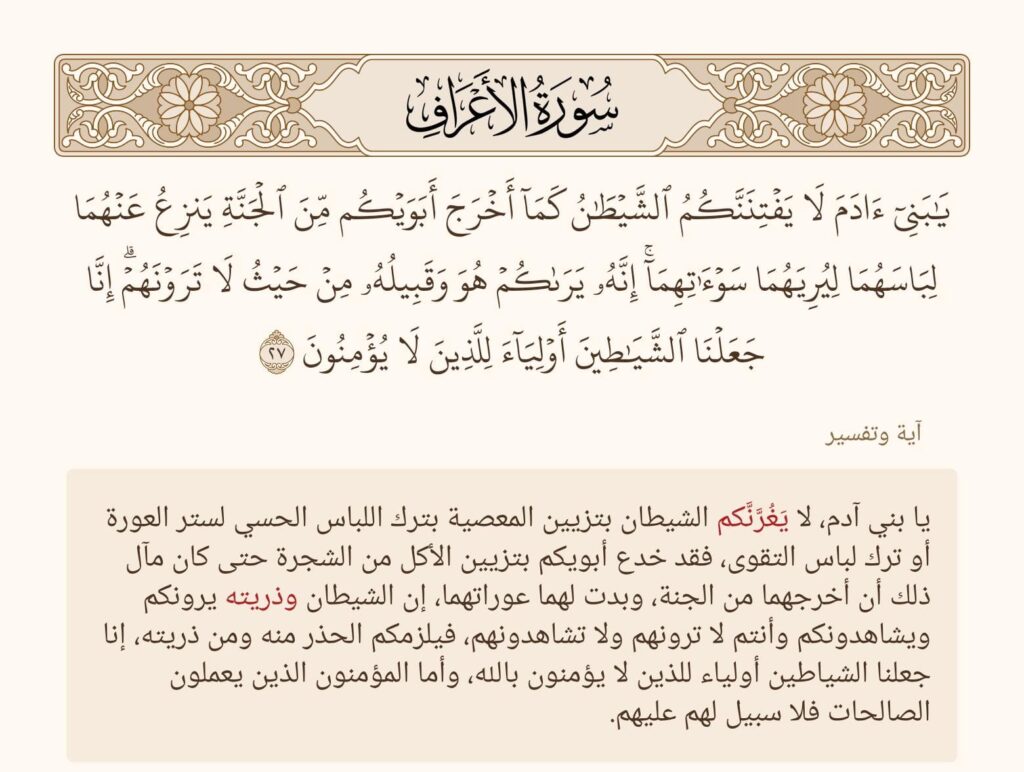 سُورَةُ الأَعْرَافِ
يَٰبَنِيٓ ءَادَمَ لَا يَفْتِنَنَّكُمُ ٱلشَّيْطَٰنُ كَمَآ أَخْرَجَ أَبَوَيْكُم مِّنَ ٱلْجَنَّةِ يَنزِعُ عَنْهُمَا
لِبَاسَهُمَا لِيُرِيَهُمَا سَوْءَٰتِهِمَآۚ إِنَّهُۥ يَرَىٰكُمْ هُوَ وَقَبِيلُهُۥ مِنْ حَيْثُ لَا تَرَوْنَهُمْۗ إِنَّا
جَعَلْنَا ٱلشَّيَٰطِينَ أَوْلِيَآءَ لِلَّذِينَ لَا يُؤْمِنُونَ ٢٧
آية وتفسير
يا بني آدم، لا يَغُرَّنَّكم الشيطان بتزيين المعصية بترك اللباس الحسي لستر العورة
أو ترك لباس التقوى، فقد خدع أبويكم بتزيين الأكل من الشجرة حتى كان مآل
ذلك أن أخرجهما من الجنة، وبدت لهما عوراتهما، إن الشيطان وذريته يرونكم
ويشاهدونكم وأنتم لا ترونهم ولا تشاهدونهم، فيلزمكم الحذر منه ومن ذريته، إنا
جعلنا الشياطين أولياء للذين لا يؤمنون بالله، وأما المؤمنون الذين يعملون
الصالحات فلا سبيل لهم عليهم.